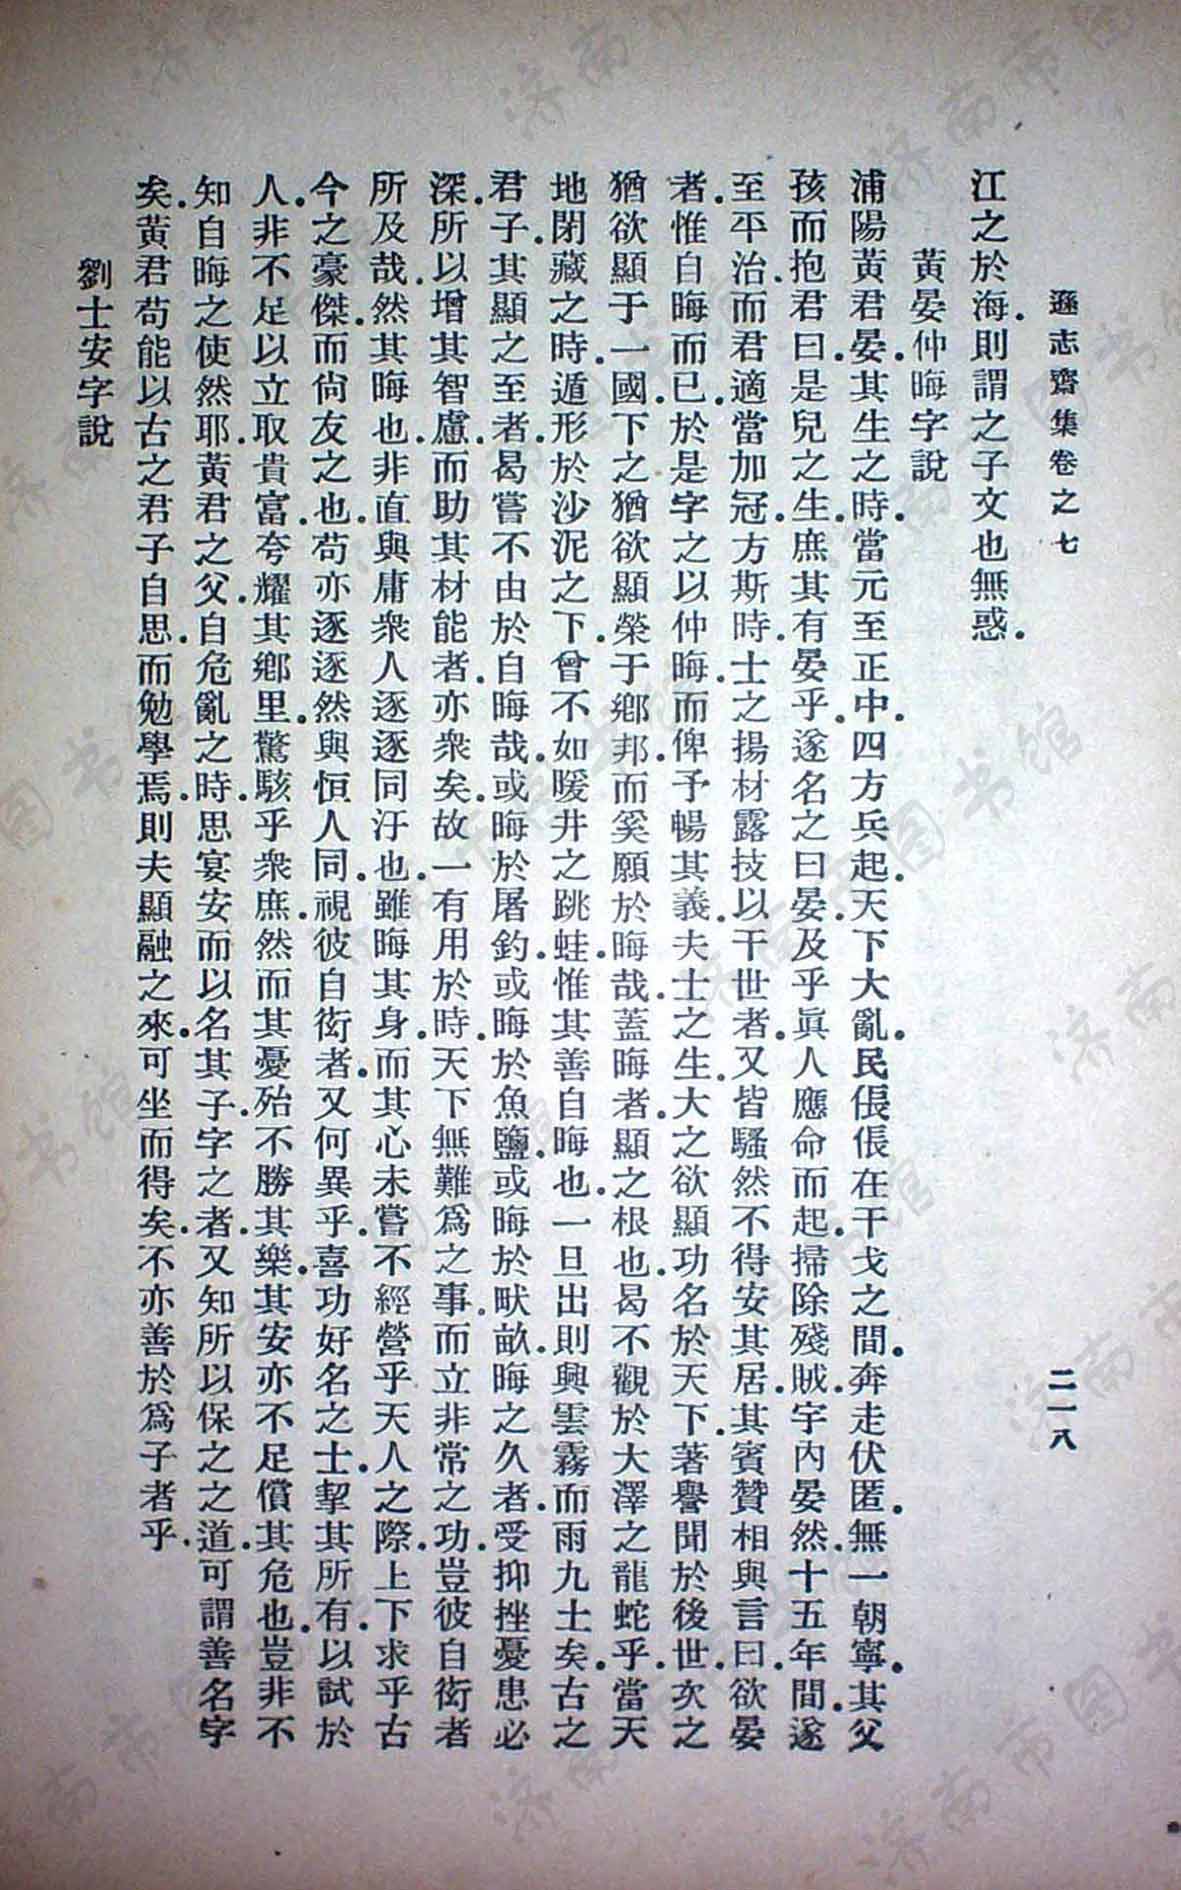 遜志齋集卷之七
二一八
江之於海.則謂之子文也無惑.
黃晏仲晦字說
浦陽黃君晏.其生之時.當元至正中.四方兵起.天下大亂.民倀倀在干戈之間.奔走伏匿.無一朝寧.其父
孩而抱君曰.是兒之生.庶其有晏乎.遂名之曰晏.及乎眞人應命而起.掃除殘賊.宇內晏然.十五年間.遂
至平治.而君適當加冠.方斯時.士之揚材露技.以干世者.又皆騷然不得安其居.其賓贊相與言曰.欲晏
者.惟自晦而已.於是字之以仲晦.而俾予暢其義.夫士之生.大之欲顯功名於天下.著譽聞於後世.次之
猶欲顯于一國.下之猶欲顯榮于鄕邦.而奚願於晦哉.蓋晦者.顯之根也.曷不觀於大澤之龍蛇乎.當天
地閉藏之時.遁形於沙泥之下.曾不如暖井之跳蛙.惟其善自晦也.一旦出則興雲霧.而雨九土矣.古之
君子.其顯之至者.曷嘗不由於自晦哉.或晦於屠釣.或晦於魚鹽.或晦於畎畝.晦之久者.受抑挫憂患必
深.所以增其智慮.而助其材能者.亦衆矣.故一有用於時.天下無難爲之事.而立非常之功.豈彼自衒者
所及哉.然其晦也.非直與庸衆人逐逐同汙也.雖晦其身.而其心未嘗不經營乎天人之際.上下求乎古
今之豪傑.而尙友之也.苟亦逐逐然與恒人同.視彼自衒者.又何異乎.喜功好名之士.挈其所有.以試於
人.非不足以立取貴富.夸耀其鄕里.驚駭乎衆庶.然而其憂殆不勝其樂.其安亦不足償其危也.豈非不
知自晦之使然耶.黃君之父.自危亂之時.思宴安而以名其子.字之者.又知所以保之之道.可謂善名字
矣.黃君苟能以古之君子自思.而勉學焉.則夫顯融之來.可坐而得矣.不亦善於爲子者乎.
劉士安字說